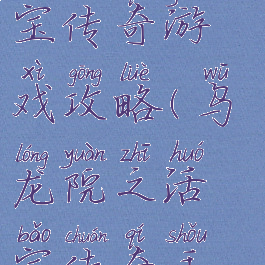 宝传奇游
xì gōng lüè wū
戏攻略(乌
lóng yuàn zhī huó
龙院之活
bǎo chuán qí shǒu